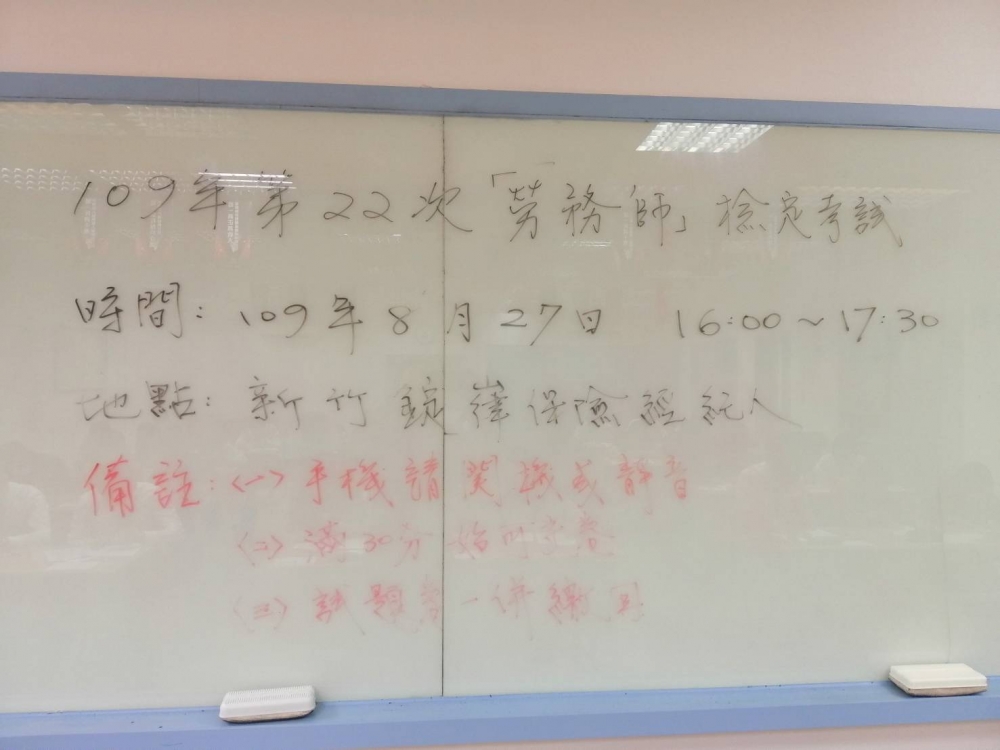 109年第22次「勞務師」檢定考試
時間: 109年8月27日 16:00~17:30
地點: 新竹錠嵂保險經紀人
備註: <一> 手機請関機或靜音
<二> 滿30分始可交卷
<三> 試題卷一併繳回